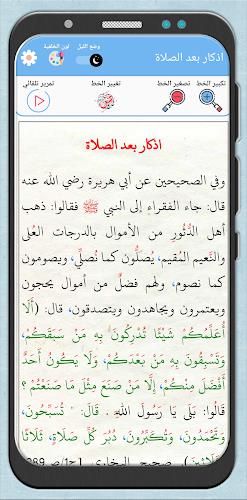 اذكار بعد الصلاة
وضع الليل
لون الخلفية
تكبير الخط
تصغير الخط
تغيير الخط
تمرير تلقائي
اذكار بعد الصلاة
وفي الصحيحين عن أبي هريرة رضي الله عنه
قال: جاء الفقراء إلى النبي ﷺ فقالوا: ذهب
أهل الدُّثُورِ من الأموال بالدرجات العُلى
والنَّعيم المُقيم، يُصَلُّون كما نُصلِّي، ويصومون
كما نصوم، ولهم فضلٌ من أموال يحجون
ويعتمرون ويجاهدون ويتصدقون، قال: (أَلَا
أُعَلِّمُكُمْ شَيْئًا تُدْرِكُونَ بِهِ مَنْ سَبَقَكُمْ،
وَتَسْبِقُونَ بِهِ مَنْ بَعْدَكُمْ، وَلَا يَكُونُ أَحَدٌ
أَفْضَلَ مِنْكُمْ، إِلَّا مَنْ صَنَعَ مِثْلَ مَا صَنَعْتُمْ ؟
قَالُوا: بَلَى يَا رَسُولَ اللهِ . قَالَ: " تُسَبِّحُونَ،
وَتَحْمَدُونَ، وَتُكَبِّرُونَ، دُبُرَ كُلِّ صَلَاةٍ، ثَلَاثًا